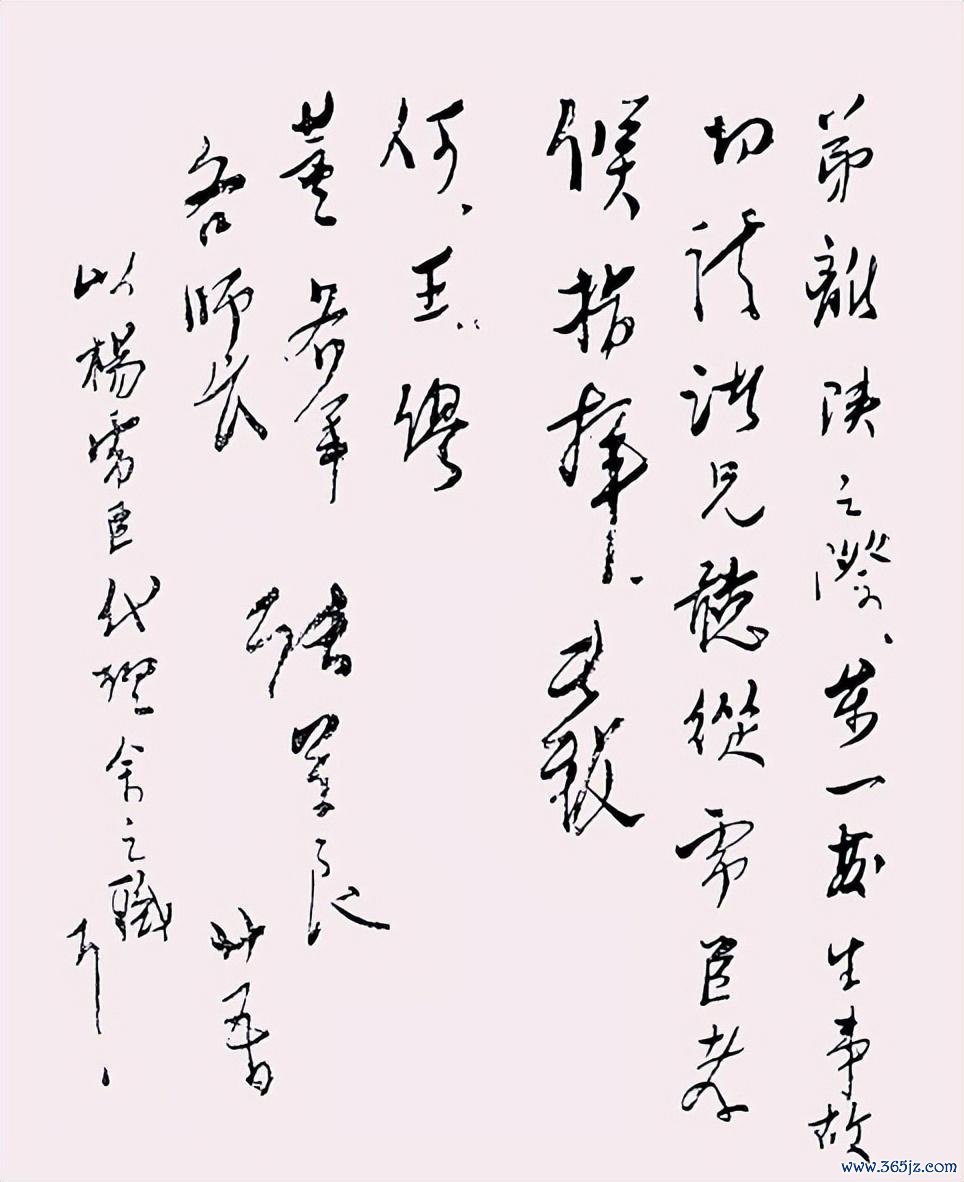 弟離陝之際、萬一發生事故
切請諸兄聽從虎臣孝
侯指揮.此致
何、王、繆
董各軍
各師長
張學良
廿五日
以楊虎臣代理余之職
即.
www.365jz.com